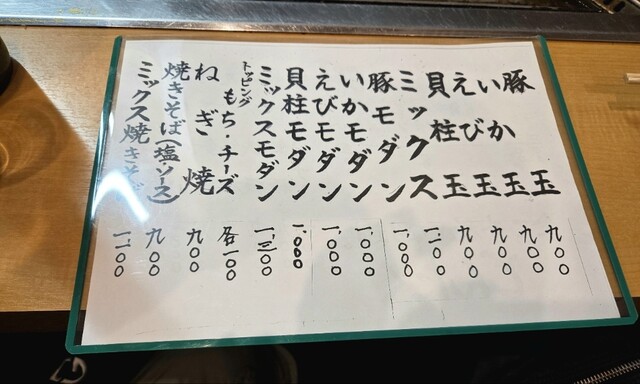 豚玉 九〇〇
いか玉 九〇〇
えび玉 九〇〇
貝柱玉 九〇〇
ミックス
豚モダン 一、〇〇〇
いかモダン 一、〇〇〇
えびモダン 一、〇〇〇
貝柱モダン 一、〇〇〇
ミックスモダン 一、三〇〇
トッピング もち・チーズ 各一〇〇
ねぎ焼 九〇〇
焼きそば(塩・ソース) 九〇〇
ミックス焼きそば 一、一〇〇